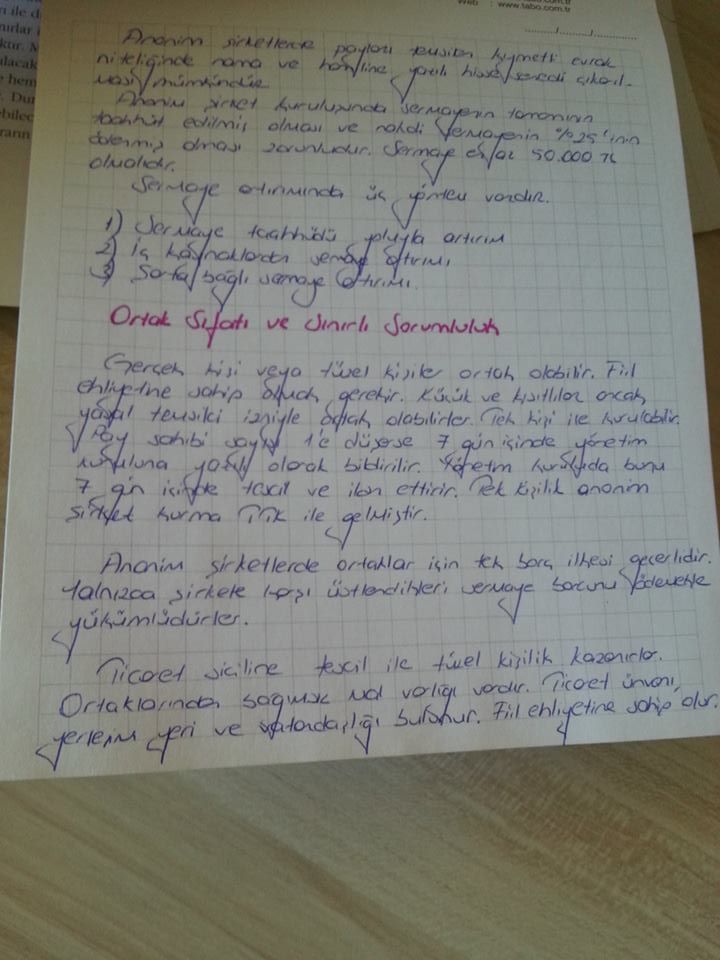 Web : www.tabo.com.tr
....../....../......
Anonim şirketlerde payları temsilen kıymetli evrak
niteliğinde nama ve hamiline yazılı hisse senedi çıkarıl-
ması mümkündür.
Anonim şirket kuruluşunda sermayenin tamamının
taahhüt edilmiş olması ve nakdi sermayenin %25'inin
ödenmiş olması zorunludur. Sermaye en az 50.000 TL
olmalıdır.
Sermaye artırımında üç yöntem vardır.
1) Sermaye taahhüdü yoluyla artırım
2) İç kaynaklardan sermaye artırımı
3) Şarta bağlı sermaye artırımı.
Ortak Sıfatı ve Sınırlı Sorumluluk
Gerçek kişi veya tüzel kişiler ortak olabilir. Fiil
ehliyetine sahip olmak gerekir. Küçük ve kısıtlılar ancak
yasal temsilci izniyle ortak olabilirler. Tek kişi ile kurulabilir.
Pay sahibi sayısı 1'e düşerse 7 gün içinde yönetim
kuruluna yazılı olarak bildirilir. Yönetim kurulu da bunu
7 gün içinde tescil ve ilan ettirir. Tek kişilik anonim
şirket kurma TTK ile gelmiştir.
Anonim şirketlerde ortaklar için tek borç ilkesi geçerlidir.
Yalnızca şirkete karşı üstlendikleri sermaye borcunu ödemekle
yükümlüdürler.
Ticaret siciline tescil ile tüzel kişilik kazanırlar.
Ortaklarından bağımsız mal varlığı vardır. Ticaret ünvanı,
yerleşim yeri ve vatandaşlığı bulunur. Fiil ehliyetine sahip olur.